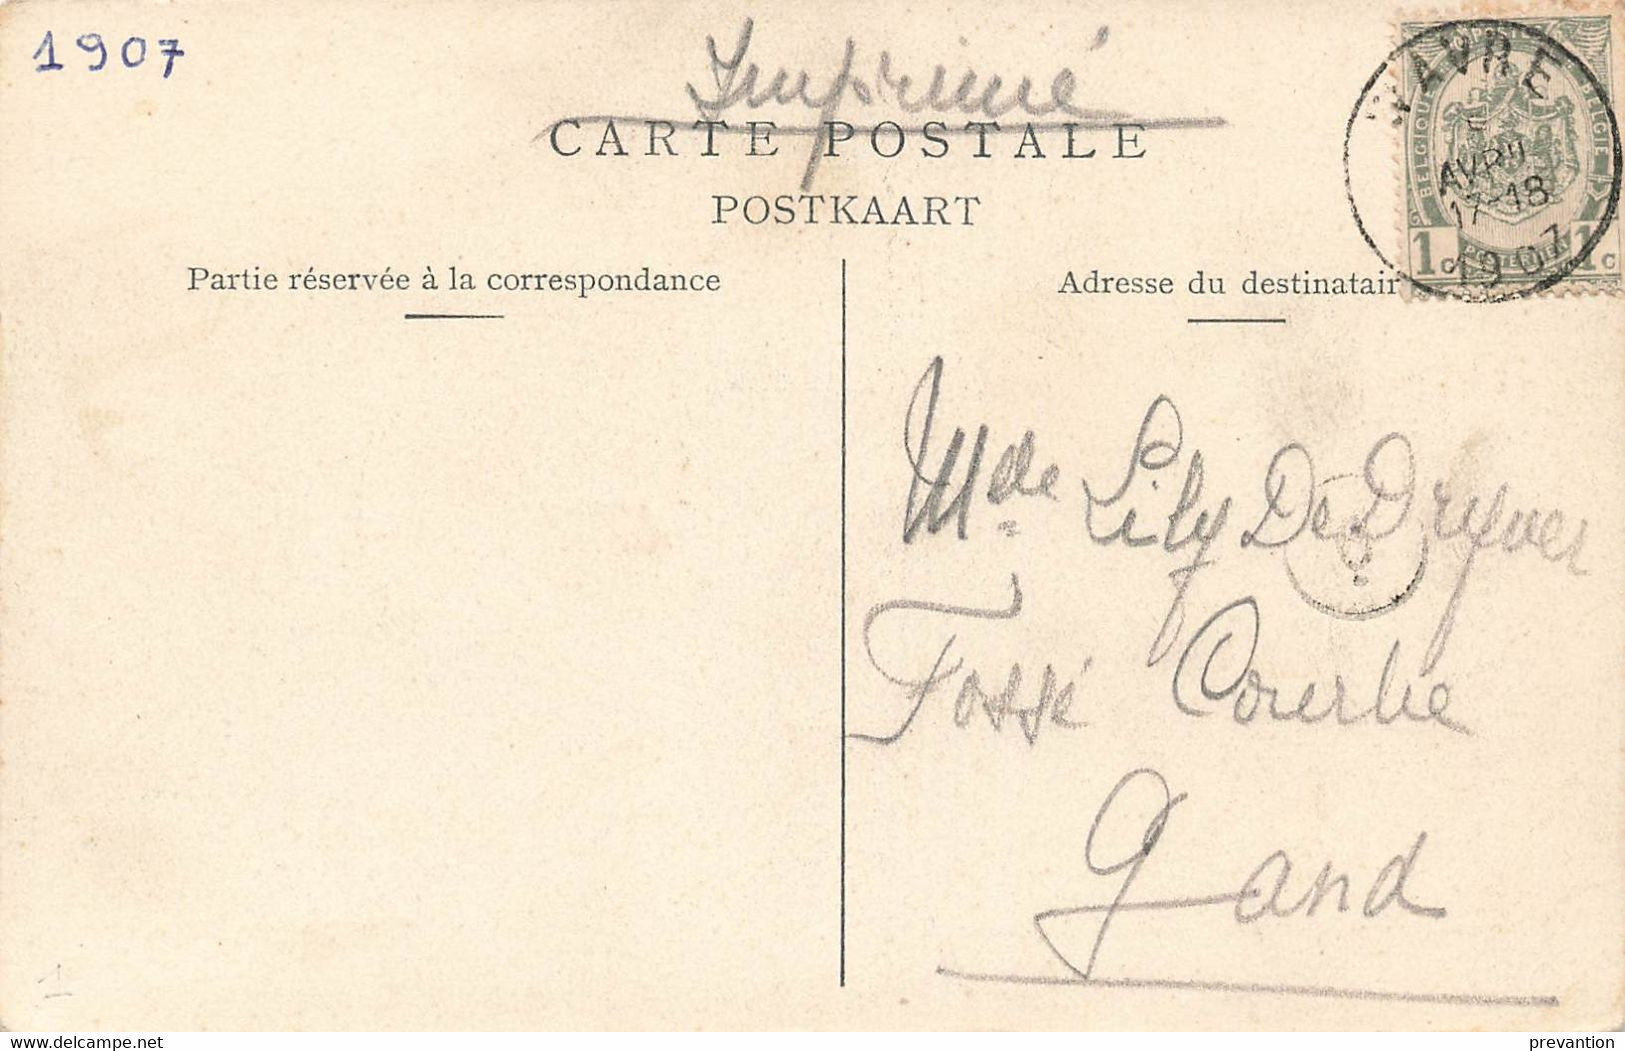 1907
Imprimé
CARTE POSTALE
POSTKAART
Partie réservée à la correspondance
Adresse du destinatair
WAVRE
AVRIL
17-18
1907
BELGIQUE
BELGIE
1c
1c
Mde Lily De Dryver
Fossé Courbe
Gand
1
www.delcampe.net
prevantion